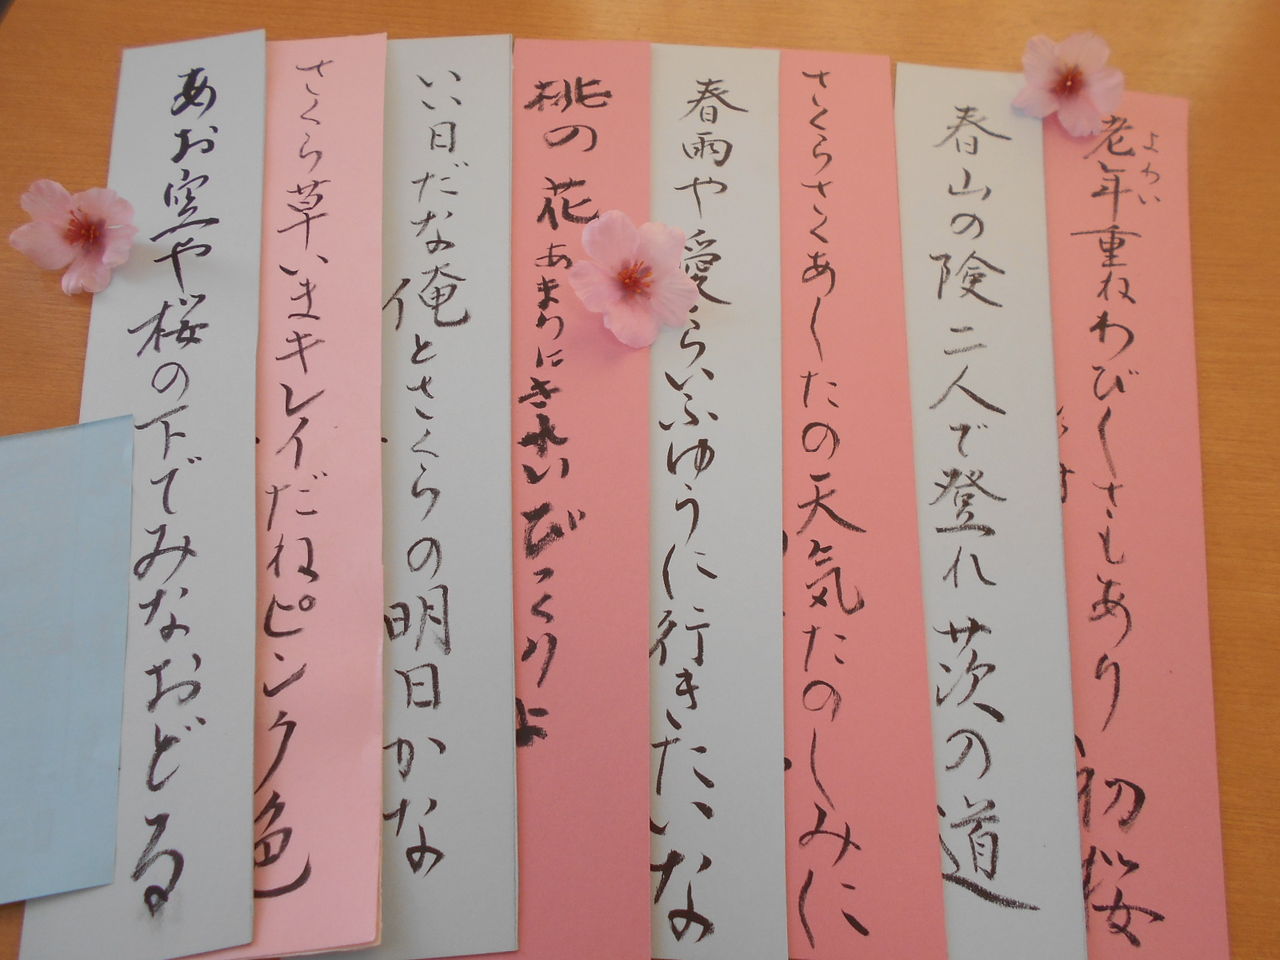 老年重ねわびしさもあり初桜
よわい
春山の険二人で登れ茨の道
さくらさくあしたの天気たのしみに
春雨や愛らいふゆうに行きたいな
桃の花あまりにきれいびっくりよ
いい日だな俺とさくらの明日かな
さくら草いまキレイだねピンク色
あお空や桜の下でみなおどる